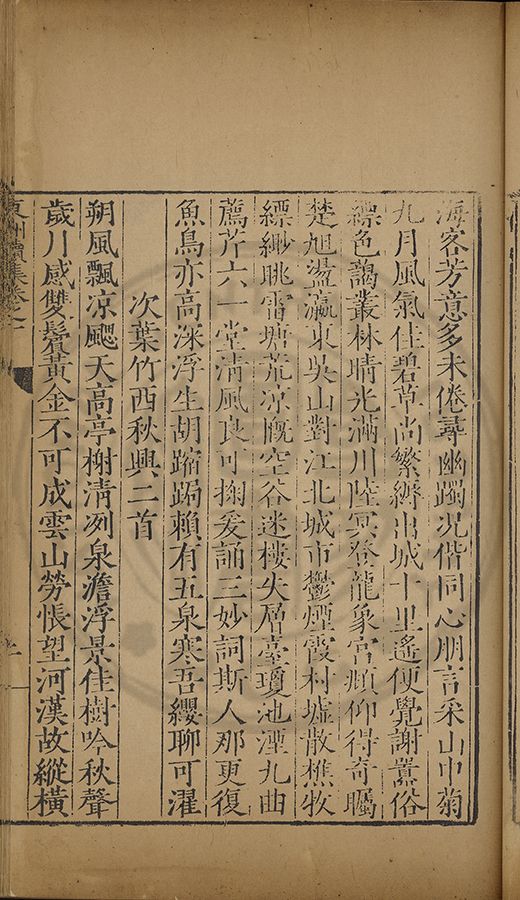 海客芳意多未倦尋幽躅况偕同心朋言采山中菊
九月風氣佳碧草尚繁縟出城十里遙便覺謝嚣俗
綠色藹叢林晴光滿川陸冥登龍象宮頫仰得奇矚
楚旭盪瀛東吳山對江北城市鬱煙霞村墟散樵牧
縹緲眺雷塘荒凉慨空谷迷樓失層臺瓊池湮九曲
薦芹六一堂清風良可掬爰誦三妙詞斯人那更復
魚鳥亦高深浮生胡蹐跼賴有五泉寒吾纓聊可濯
次葉竹西秋興二首
朔風飄凉颸天高亭榭清冽泉澹浮景佳樹吟秋聲
歲川感雙鬢黃金不可成雲山勞悵望河漢故縱橫
東洲續集卷之
二